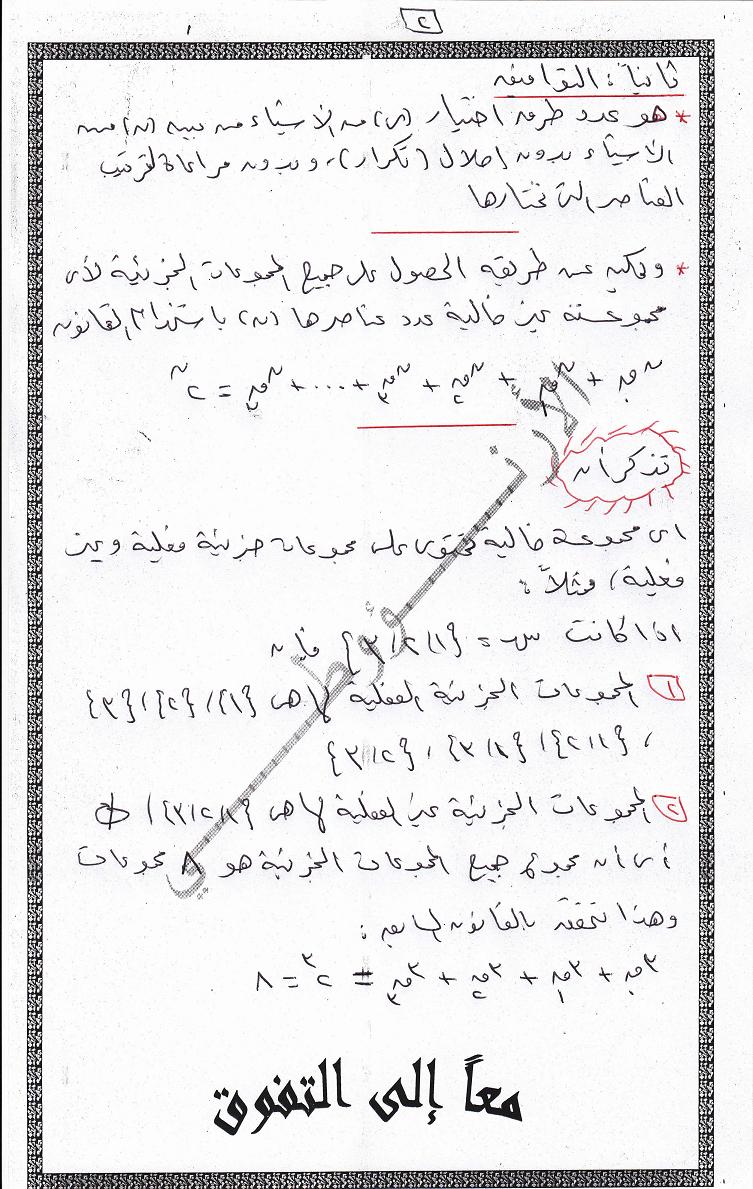 ٢
ثانياً : التوافيق
* هو عدد طرق اختيار (ر) من الأشياء من بين (ن) من
الأشياء بدون إحلال (تكرار)، وبدون مراعاة لترتيب
العناصر التى نختارها
* ويمكن عن طريقه الحصول على جميع المجموعات الجزئية لأى
مجموعة غير خالية عدد عناصرها (ن) باستخدام القانون
ⁿق. + ⁿق١ + ⁿق٢ + ⁿق٣ + ... + ⁿقن = ٢ⁿ
تذكر أن
اى مجموعة خالية تحتوى على مجموعات جزئية فعلية وغير
فعلية، فمثلاً :
اذا كانت س = {١،٢،٣} فإن
١ المجموعات الجزئية الفعلية لها هى {١}، {٢}، {٣}
، {١،٢}، {١،٣}، {٢،٣}
٢ المجموعات الجزئية غير الفعلية لها هى {١،٢،٣}، φ
أى أن مجموع جميع المجموعات الجزئية هو ٨ مجموعات
وهذا تحققه بالقانون السابق :
³ق. + ³ق١ + ³ق٢ + ³ق٣ = ٢³ = ٨
معاً إلى التفوق